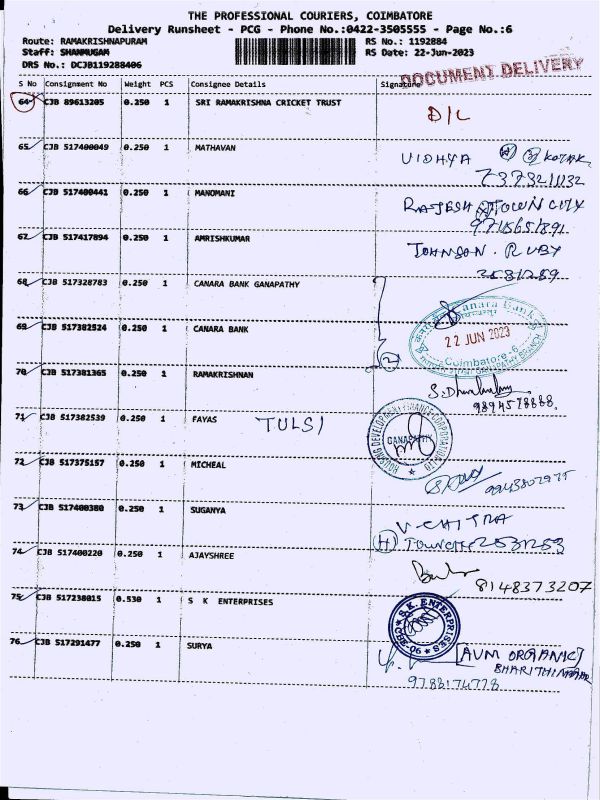 THE PROFESSIONAL COURIERS, COIMBATORE
Delivery Runsheet - PCG - Phone No.:0422-3505555 - Page No.:6
Route: RAMAKRISHNAPURAM RS No.: 1192884
Staff: SHANMUGAM RS Date: 22-Jun-2023
DRS No.: DCJB119288406
DOCUMENT DELIVERY
S No Consignment No Weight PCS Consignee Details Signature
64 CJB 89613205 0.250 1 SRI RAMAKRISHNA CRICKET TRUST D/L
65 CJB 517400049 0.250 1 MATHAVAN VIDHYA
7373211132
66 CJB 517400441 0.250 1 MANOMANI RAJESH TOWN CITY
67 CJB 517417894 0.250 1 AMRISHKUMAR JOHNSON. RUBY
68 CJB 517328783 0.250 1 CANARA BANK GANAPATHY
Canara Bank
69 CJB 517382524 0.250 1 CANARA BANK 22 JUN 2023
2 Coimbatore-6
70 CJB 517381365 0.250 1 RAMAKRISHNAN
9894578888.
71 CJB 517382539 0.250 1 FAYAS TULSI
GANAPATHY
72 CJB 517375157 0.250 1 MICHEAL
73 CJB 517400380 0.250 1 SUGANYA V-CHITRA
(H)
74 CJB 517400220 0.250 1 AJAYSHREE
8148373207
75 CJB 517238015 0.530 1 S K ENTERPRISES S.K. ENTERPRISES
76 CJB 517291477 0.250 1 SURYA [AVM ORGANIC]
9788174778